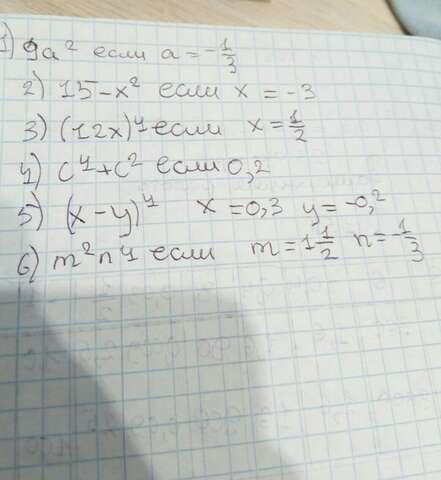 1) 9a² если a = -1/3
2) 15-x² если x = -3
3) (12x)⁴ если x = 1/2
4) c⁴+c² если 0,2
5) (x-y)⁴ x = 0,3 y = -0,2
6) m²n4 если m = 1 1/2 n = -1/3